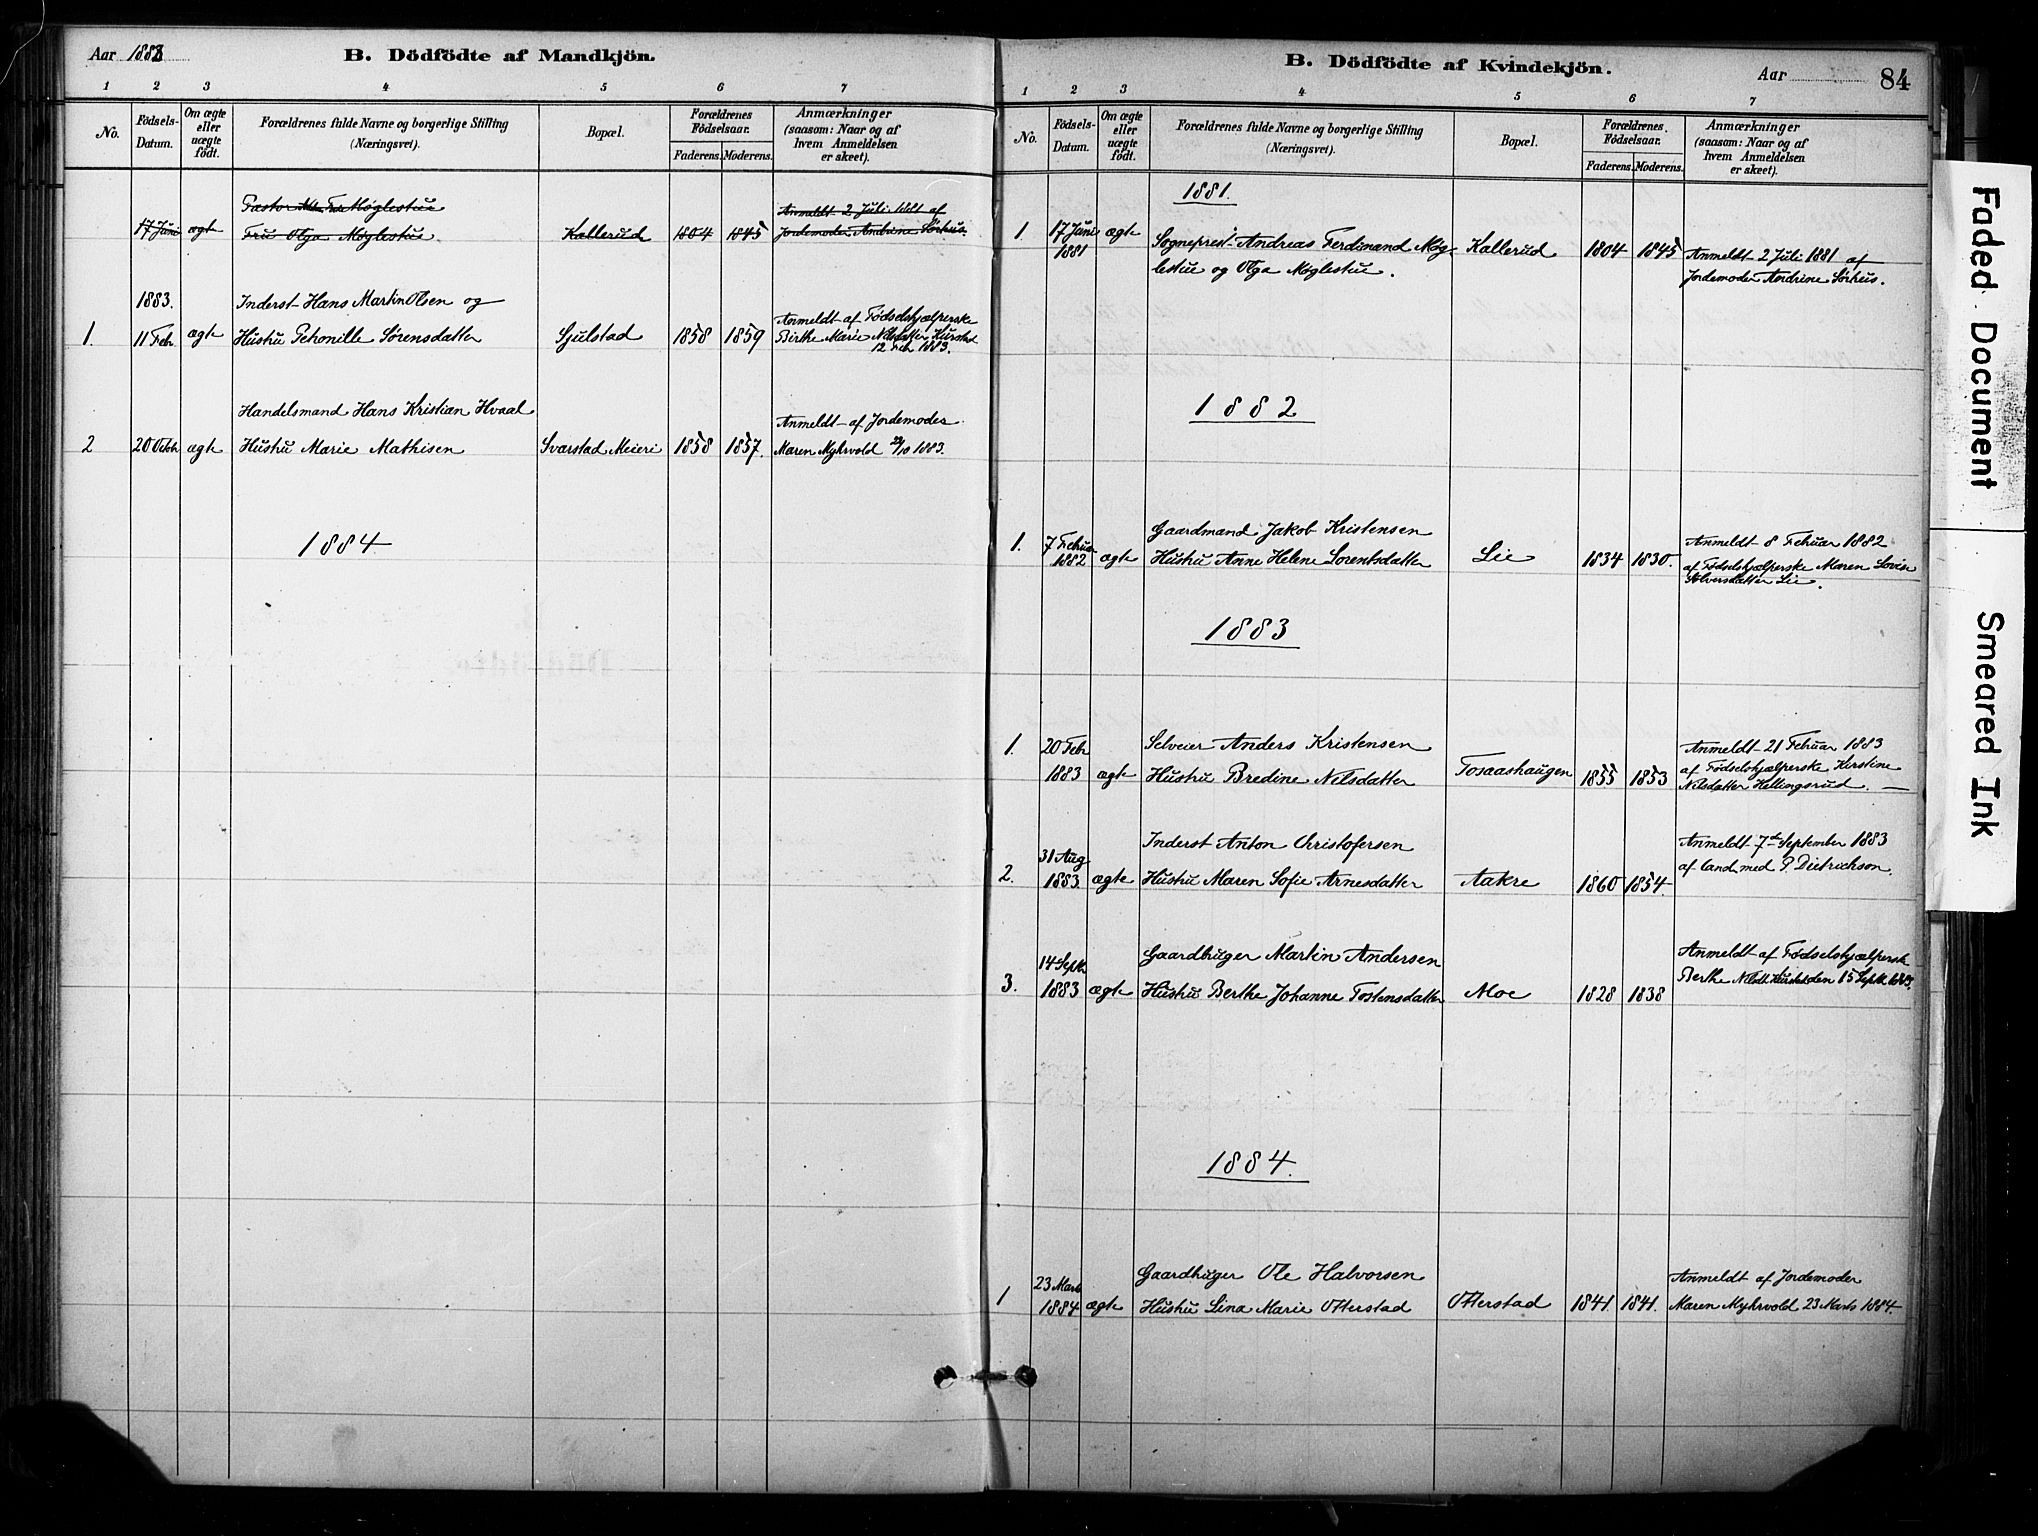 Aar 1883
B. Dödfödte af Mandkjön.
1 2 3 4 5 6 7
No.
Födsels-Datum.
Om ægte eller uægte födt.
Forældrenes fulde Navne og borgerlige Stilling (Næringsvei).
Bopæl.
Forældrenes Födselsaar.
Faderens. Moderens.
Anmærkninger (saasom: Naar og af hvem Anmeldelsen er skeet).
Pastor Møglestue Anmeldt 2 Juli 1881 af
17 Juni ægte Fru Olga Møglestue. Kallerud 1804 1845 Jordemoder Andrine Sörhus.
1883. Inderst Hans Martin Olsen og Anmeldt af Fødselshjælperske
1. 11 Febr ægte Hustru Petronille Sørensdatter Sjulstad 1858 1859 Birthe Marie Nilsdatter Hurstad
12 Febr 1883.
Handelsmand Hans Kristian Hvaal Anmeldt af Jordemoder
2 20 Octbr ægte Hustru Marie Mathisen Svarstad Meieri 1858 1857. Maren Myhrvold /10 1883.
1884
B. Dödfödte af Kvindekjön.
Aar
84
1 2 3 4 5 6 7
No.
Födsels-Datum.
Om ægte eller uægte födt.
Forældrenes fulde Navne og borgerlige Stilling (Næringsvei).
Bopæl.
Forældrenes Födselsaar.
Faderens. Moderens.
Anmærkninger (saasom: Naar og af hvem Anmeldelsen er skeet).
1881.
1. 17 Juni 1881 ægte Sogneprest Andreas Ferdinand Møg- Kallerud 1804 1845 Anmeldt 2 Juli 1881 af
lestue og Olga Møglestue. Jordemoder Andrine Sörhus.
1882
Gaardmand Jakob Kristensen Anmeldt 8 Februar 1882
1. 7 Februar 1882 ægte Hustru Anne Helene Lorentsdatter Lie 1834 1830. af Fødselshjælperske Maren Lovise
Halversdatter Lie.
1883
1. 20 Febr Selveier Anders Kristensen Anmeldt 21 Februar 1883
1883 ægte Hustru Bredine Nilsdatter Tosaashaugen 1855 1853 af Fødselshjælperske Kirstine
Nilsdatter Hellingsrud. —
31 Aug Inderst Anton Christofersen Anmeldt 7de September 1883
2. 1883. ægte Hustru Maren Sofie Arnesdatter Aakre 1860 1854. af Cand. med P. Dietrichson.
14 Septbr Gaardbruger Martin Andersen Anmeldt af Fødselshjælperske
3. 1883 ægte Hustru Berthe Johanne Tostensdatter Moe 1828 1838 Berthe Nilsdt Hurstad den 15 Septbr 1883.
1884.
23 Marts Gaardbruger Ole Halvorsen Anmeldt af Jordemoder
1 1884 ægte Hustru Lina Marie Otterstad Otterstad 1841. 1841. Maren Myhrvold 23 Marts 1884.
Faded Document
Smeared Ink